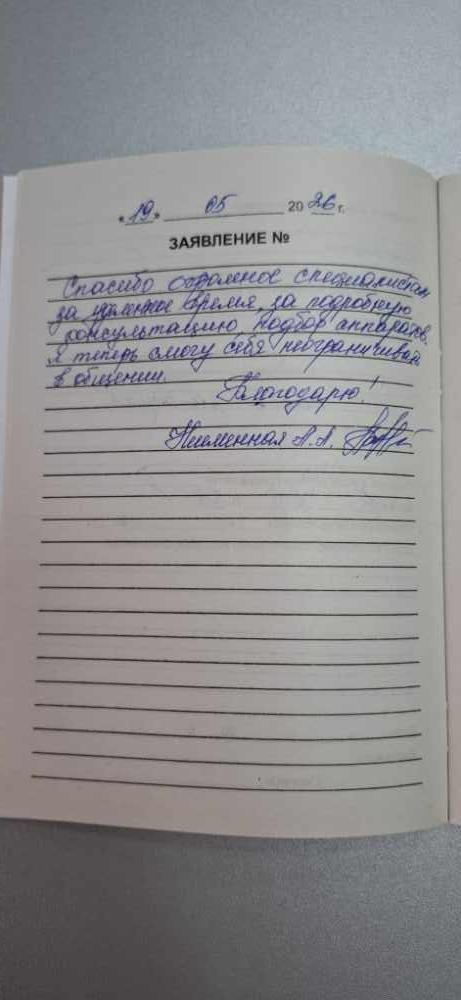 «19» 05 2026 г.
ЗАЯВЛЕНИЕ №
Спасибо огромное специалистам
за уделенное время, за подробную
консультацию, подбор аппаратов.
Я теперь смогу себя неограничивать
в общении.
Благодарю!
А.А.